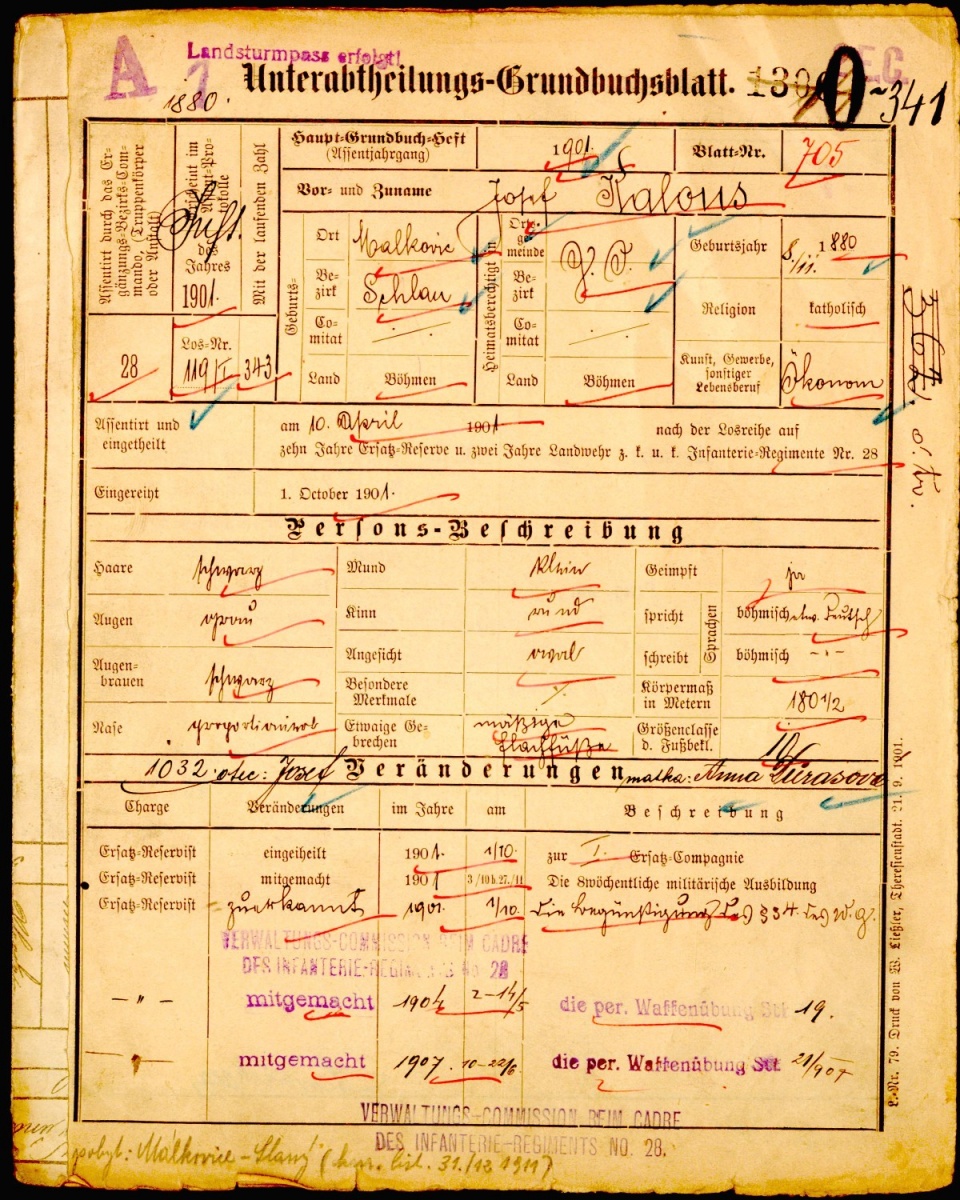 A
Landsturmpass erfolgt!
1880.
Unterabtheilungs-Grundbuchsblatt.
341
Assentirt durch das Ergänzungs-Bezirks-Commando, (Truppenkörper oder Anstalt)
des Jahres
1901.
Los-Nr.
119/I
Mit der laufenden Zahl
28
343
Haupt-Grundbuch-Heft
(Assentjahrgang)
1901.
Blatt-Nr.
705
Vor- und Zuname
Josef Kalous
Geburts-
Ort Malkovic
Bezirk Schlan
Comitat
Land Böhmen
Heimatsberechtigt in
Ortsgemeinde
Bezirk
Comitat
Land Böhmen
Geburtsjahr 8./11. 1880
Religion katholisch
Kunst, Gewerbe, sonstiger Lebensberuf Ökonom
Assentirt und eingetheilt
am 10. April 1901 nach der Losreihe auf
zehn Jahre Ersatz-Reserve u. zwei Jahre Landwehr z. k. u. k. Infanterie-Regimente Nr. 28
Eingereiht 1. October 1901.
Persons-Beschreibung
Haare schwarz Mund klein Geimpft ja
Augen grau Kinn rund spricht Sprachen böhmisch etw. Deutsch
Augenbrauen schwarz Angesicht oval schreibt böhmisch -"-
Besondere Merkmale ./. Körpermaß in Metern 180 1/2
Nase proportioniert Etwaige Gebrechen mäßige Flachfüße Größenclasse d. Fußbekl.
1032 otec: Josef Veränderungen matka: Anna
Charge Veränderungen im Jahre am Beschreibung
Ersatz-Reservist eingeiheilt 1901. 1/10. zur I. Ersatz-Compagnie
Ersatz-Reservist mitgemacht 1901 3/10 b. 27./11 Die 8wöchentliche militärische Ausbildung
Ersatz-Reservist zuerkannt 1901. 1/10. die Begünstigung des §34. des W. G.
VERWALTUNGS-COMMISSION BEIM CADRE
DES INFANTERIE-REGIMENTS No 28
-"- mitgemacht 1904 2-14/5 die per. Waffenübung Stf 19.
-"- mitgemacht 1907. 10-22/6 die per. Waffenübung Stf
VERWALTUNGS-COMMISSION BEIM CADRE
DES INFANTERIE-REGIMENTS NO. 28.
pobyt: Malkovice - Slaný 31./12 1911)
L.-Nr. 79. Druck von W. Ließler, Theresienstadt. 21. 9. 1901.